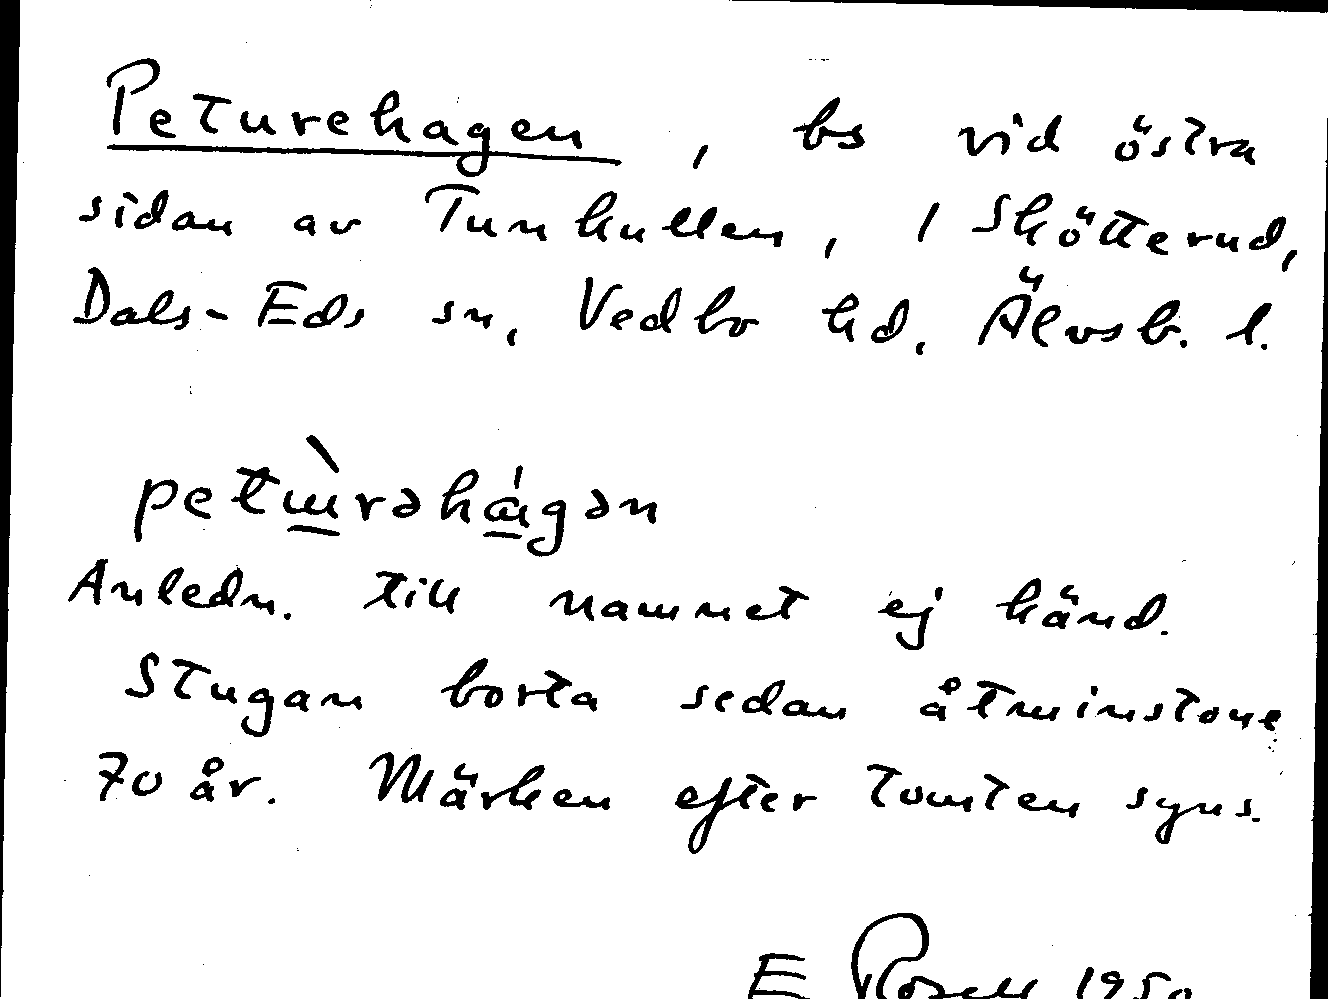 Peturehagen, bs vid östra
sidan av Tunkullen, 1 Skötterud,
Dals-Eds sn, Vedbo hd, Älvsb. l.
petɯ̀rəhágən
Anledn. till namnet ej känd.
Stugan borta sedan åtminstone
70 år. Märken efter tomten syns.
E Rosell 1950